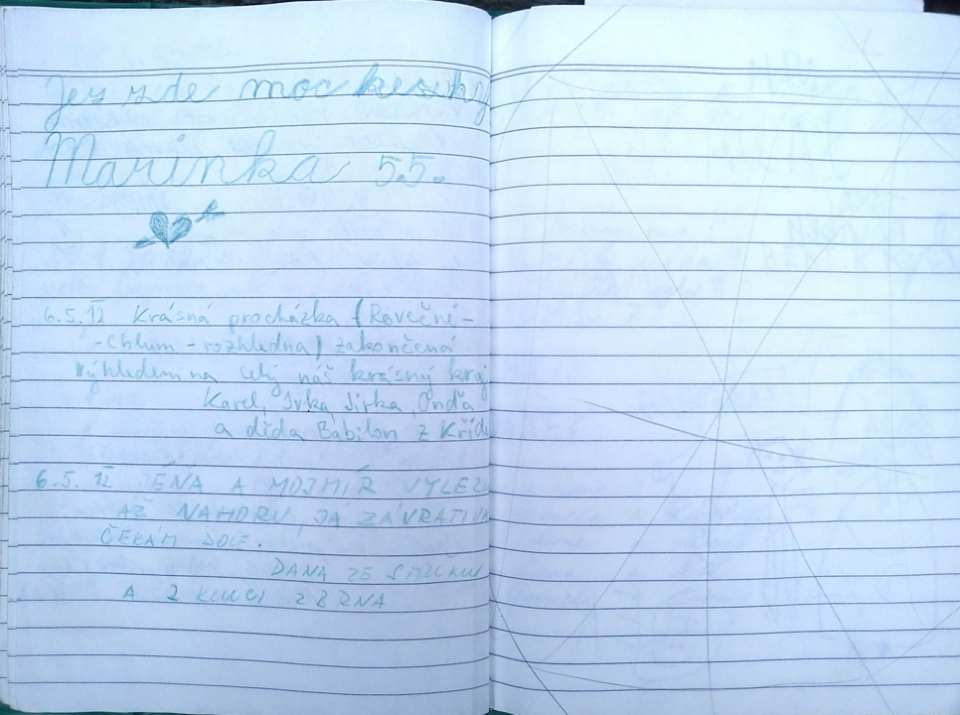 Jes zde moc hesky
Marinka 5.5.
6.5.12 Krásná procházka (Rovečné-
-Chlum-rozhledna) zakončená
výhledem na celý náš krásný kraj
Karel, Jirka, Onďa
a děda Babilon z Kříd
6.5.12 JÉŇA A MOJMÍR VYLEZLI
AŽ NAHORU, JÁ ZÁVRATIVÁ
ČEKÁM DOLE.
DANA ZE
A 2 KLUCI Z BRNA